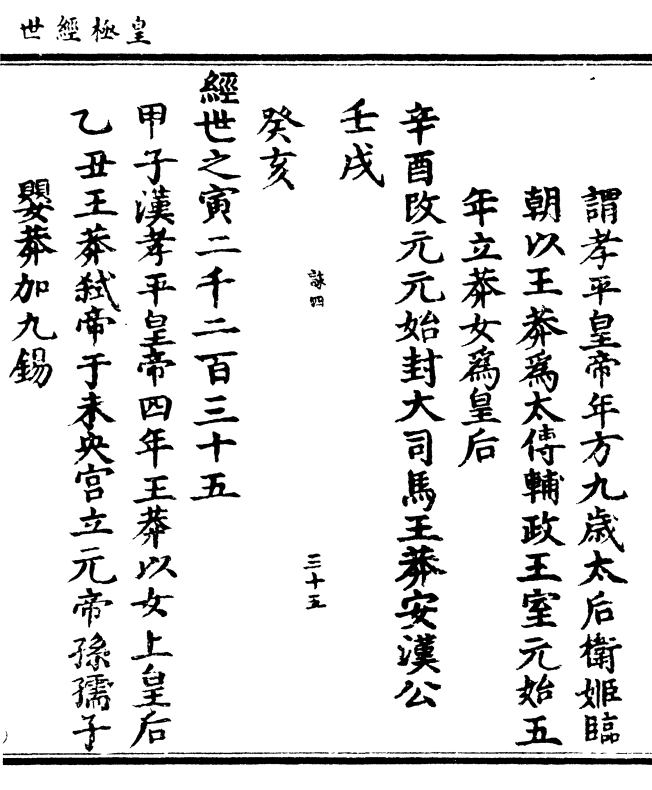 皇極經世
謂孝平皇帝年方九歲太后衛姬臨
朝以王莽爲太傅輔政王室元始五
年立莽女爲皇后
辛酉改元元始封大司馬王莽安漢公
壬戌
癸亥
三十五
經世之寅二千二百三十五
甲子漢孝平皇帝四年王莽以女上皇后
乙丑王莽弒帝于未央宮立元帝孫孺子
嬰莽加九錫